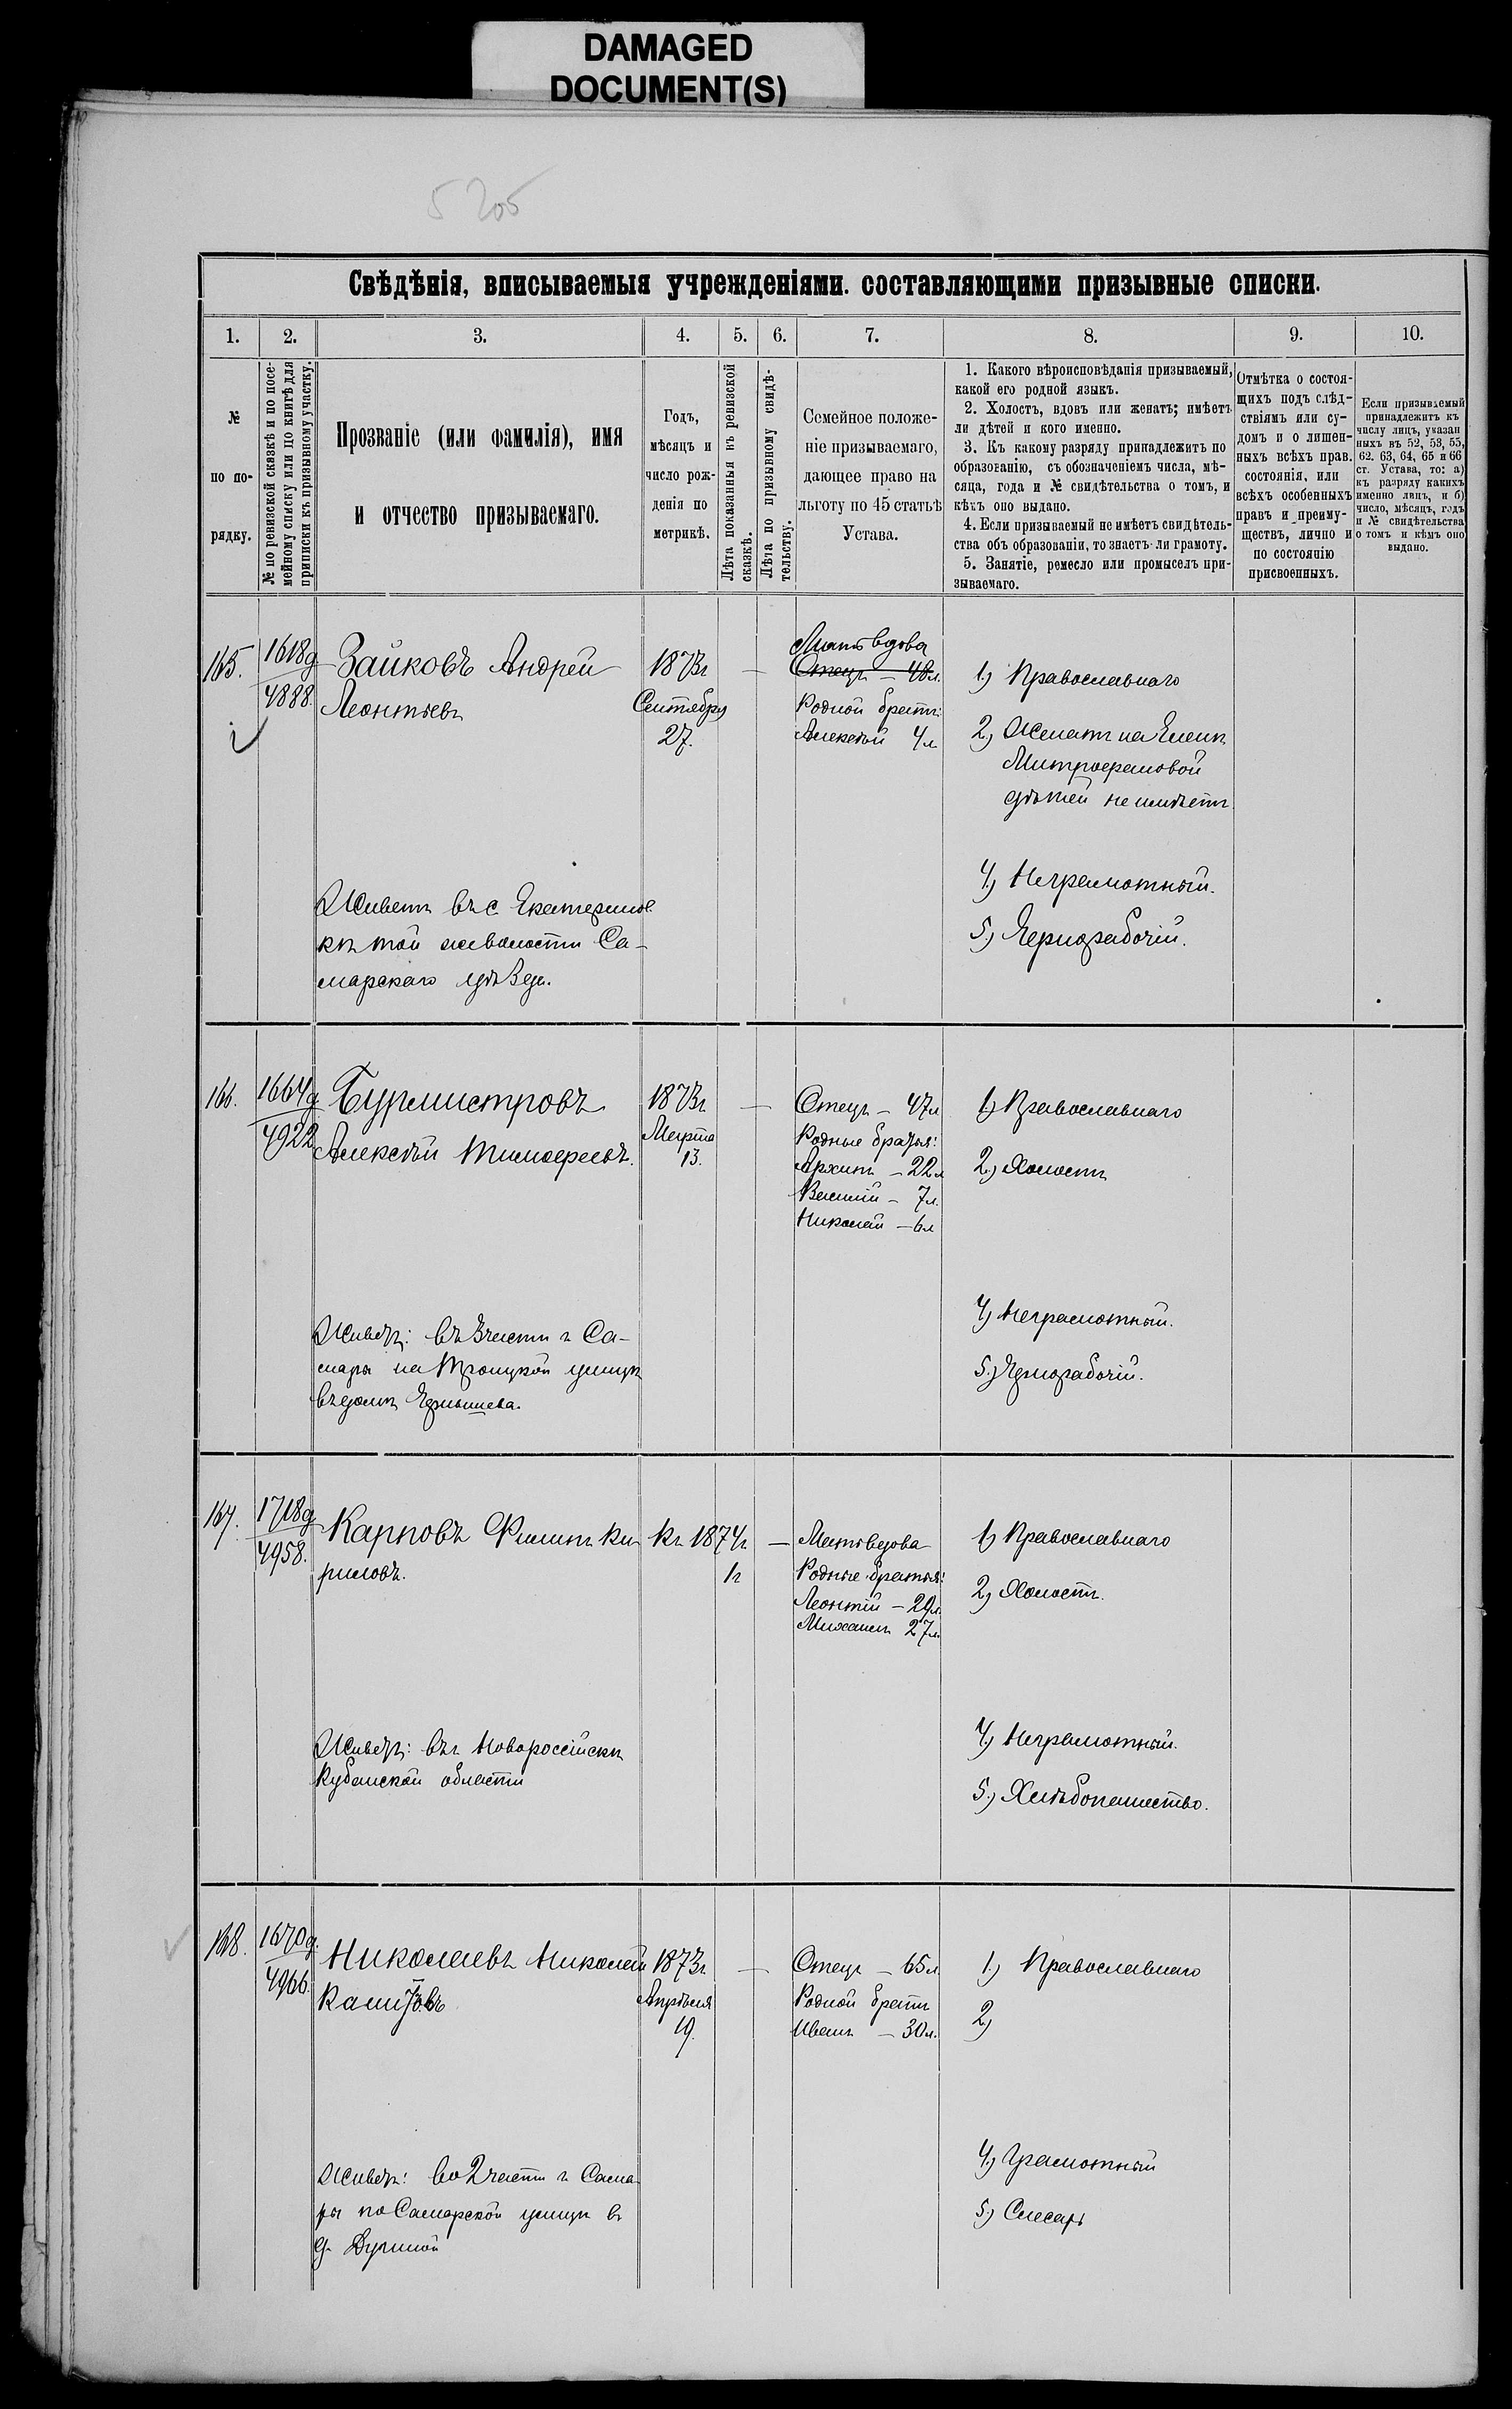 DAMAGED
DOCUMENT(S)
5 205
Свѣдѣнія, вписываемыя учрежденіями. составляющими призывные списки.
1. 2. 3. 4. 5. 6. 7. 8. 9. 10.
№
по по-
рядку.
№ по ревизской сказкѣ и по посе-
мейному списку или по книгѣ для
приписки къ призывному участку.
Прозваніе (или фамилія), имя
и отчество призываемаго.
Годъ,
мѣсяцъ и
число рож-
денія по
метрикѣ.
Лѣта показанныя въ ревизской
сказкѣ.
Лѣта по призывному свидѣ-
тельству.
Семейное положе-
ніе призываемаго,
дающее право на
льготу по 45 статьѣ
Устава.
1. Какого вѣроисповѣданія призываемый,
какой его родной языкъ.
2. Холостъ, вдовъ или женатъ; имѣетъ
ли дѣтей и кого именно.
3. Къ какому разряду принадлежитъ по
образованію, съ обозначеніемъ числа, мѣ-
сяца, года и № свидѣтельства о томъ, и
кѣмъ оно выдано.
4. Если призываемый не имѣетъ свидѣтель-
ства объ образованіи, то знаетъ-ли грамоту.
5. Занятіе, ремесло или промыселъ при-
зываемаго.
Отмѣтка о состоя-
щихъ подъ слѣд-
ствіямъ или су-
домъ и о лишен-
ныхъ всѣхъ прав.
состоянія, или
всѣхъ особенныхъ
правъ и преиму-
ществъ, лично и
по состоянію
присвоенныхъ.
Если призываемый
принадлежитъ къ
числу лицъ, указан
ныхъ въ 52, 53, 55,
62. 63, 64, 65 и 66
ст. Устава, то: а)
къ разряду какихъ
именно лицъ, и б)
число, мѣсяцъ, годъ
и № свидѣтельства
о томъ и кѣмъ оно
выдано.
165.
1618д
4888.
Зайковъ Андрей
Леонтьевъ
1873г
Сентября
27.
—
Мать вдова
Отецъ – 48л.
Родной братъ:
Алексѣй 4л
1.) Православнаго
2.) Женатъ на Еленѣ
Митрофановой
дѣтей не имѣетъ
4.) Неграмотный.
5.) Чернорабочій.
Живетъ въ с. Екатеринов
кѣ той же волости Са-
марскаго уѣзда.
166.
1664д
4922
Бурмистровъ
Алексѣй Тимофеевъ.
1873г
Марта
13.
—
Отецъ – 47л
Родные братья:
Архипъ – 22л
Василій – 7л.
Николай – 6л
1.) Православнаго
2.) Холостъ
4.) Неграмотный.
5.) Чернорабочій.
Живетъ: въ 3 части г Са-
мары на Троицкой улицѣ
въ домѣ Чернышева.
167.
1718д
4958.
Карповъ Филипъ Ки
риловъ.
Къ 1874г
1г
—
Мать вдова
Родные братья:
Леонтій – 29л.
Михаилъ 27л.
1.) Православнаго
2.) Холостъ.
4.) Неграмотный.
5.) Хлѣбопашество.
Живетъ: въ г Новороссійскѣ
Кубанской области
168.
1670д.
4966.
Николаевъ Николай
1873г
Апрѣля
19.
—
Отецъ – 65л
Родной братъ
Иванъ – 30л.
1.) Православнаго
2.)
4.) Грамотный
5.) Слесарь
Живетъ: во 2 части г Сама
ры по Самарской улицѣ в
д.